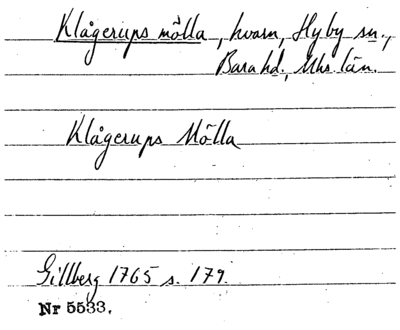 Klågerups mölla, kvarn, Hyby sn.,
Bara hd., Mhs. län.
Klågerups Mölla
Gillberg 1765 s. 179.
Nr 5533.